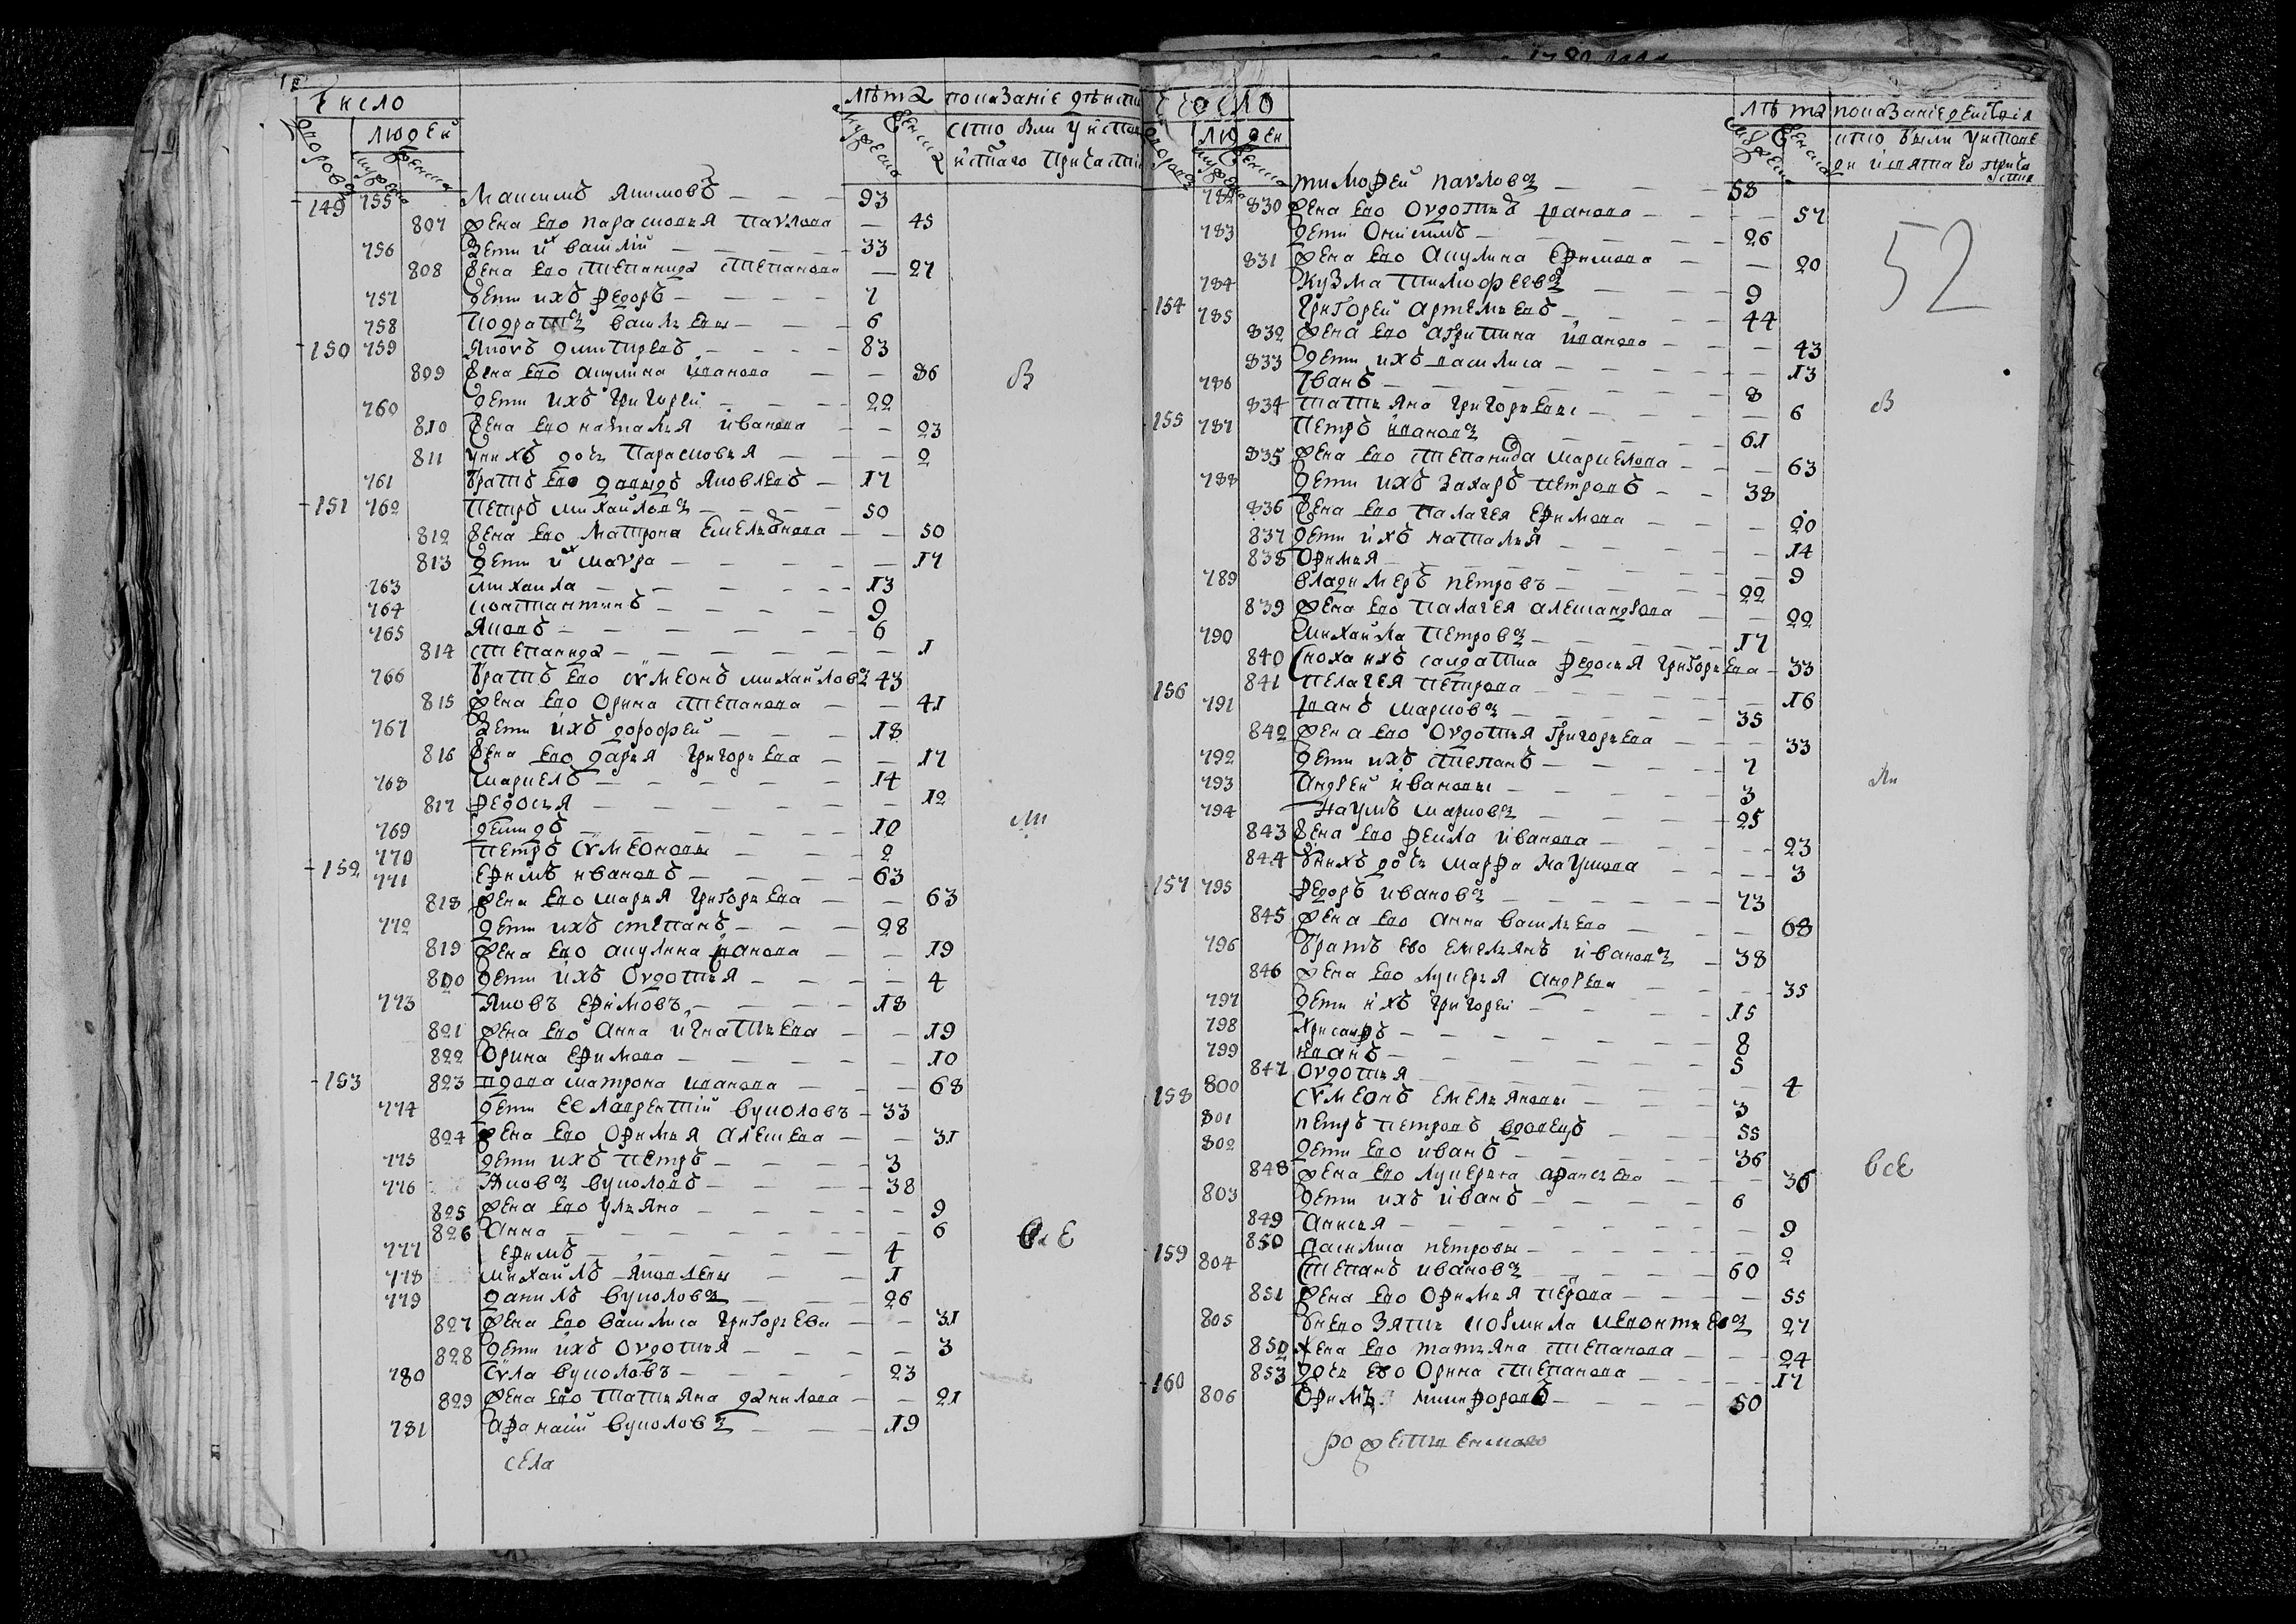 Число
дворовъ
людей
мужеска
женска
лѣта
мужеска
женска
показаніе дѣиств
кто был у испо
и с͠таго причасти
149 755 Максимъ Якимовъ 93
807 Жена ево Парасковья Павлова 45
756 Дети их Василій 33
808 Жена ево Степанида Степанова 27
757 дети ихъ Федоръ 7
758 Кодратъ Васильевы 6
150 759 Яковъ Дмитриевъ 83
809 Жена ево Акулина Иванова 86
760 Дети ихъ Григорей 22
810 Жена ево Наталья Иванова 23
811 у них дочь Парасковья 2
761 Братъ ево Давыдъ Яковлевъ 17
151 762 Петръ Михайловъ 50
812 Жена ево Матрона Емельянова 50
813 Дети их Мавра 17
763 Михаила 13
764 Константинъ 9
765 Яковъ 6
814 Степанида 1
766 Братъ ево Сѵмеонъ Михайловъ 43
815 Жена ево Орина Степанова 41
767 Дети ихъ Дорофей 18
816 Жена ево Дарья Григорьева 17
768 Маркелъ 14
817 Федосья 12
769 Демидъ 10
770 Петръ Сѵмеоновы 2
152 771 Ефимъ Ивановъ 63
818 Жена ево Марья Григорьева 63
772 Дети ихъ Степанъ 28
819 Жена ево Акулина Иванова 19
820 Дети ихъ Овдотья 4
773 Яковъ Ефимовъ 18
821 Жена ево Анна Игнатьева 19
822 Орина Ефимова 10
153 823 вдова Матрона Иванова 68
774 Дети ее Лаврентій Вуколовъ 33
824 Жена ево Офимья Алексева 31
775 Дети ихъ Петръ 3
776 Яковъ Вуколовъ 38
825 Жена ево Ульяна 9
826 Анна 6
777 Ефимъ 4
778 Михайлъ Яковлевы 1
779 Данилъ Вуколовъ 26
827 Жена ево Василиса Григорьева 31
828 Дети ихъ Овдотья 3
780 Сѵла Вуколовъ 23
829 Жена ево Татьяна Данилова 21
781 Афанасій Вуколовъ 19
села
В
Ли
всЕ
Число
дворовъ
людей
мужеска
женска
лѣта
мужеска
женска
показаніе деиствія
кто были у испове
ди и святаго прича
стия
52
782 Тимофей Павловъ 58
830 Жена ево Овдотья Иванова 57
783 Дети Онисимъ 26
831 Жена ево Акулина Ефимова 20
784 Кузма Тимофеевъ 9
154 785 Григорей Артемьевъ 44
832 Жена ево Агрипина Иванова 43
833 Дети ихъ Василиса 13
786 Иванъ 8
834 Татьяна Григорьевы 6
155 787 Петръ Ивановъ 61
835 Жена ево Степанида Маркелова 63
788 Дети ихъ Захаръ Петровъ 38
836 Жена ево Палагея Ефимова 20
837 Дети ихъ Наталья 14
838 Офимья 9
789 Владимеръ Петровъ 22
839 Жена ево Палагея Александрова 22
790 Михайла Петровъ 17
840 Сноха ихъ салдатка Федосья Григорьева 33
841 Пелагея Петрова 16
156 791 Иванъ Марковъ 35
842 Жена ево Овдотья Григорьева 33
792 Дети ихъ Степанъ 7
793 Андрей Ивановы 3
794 Наумъ Марковъ 25
843 Жена ево Фекла Иванова 23
844 У нихъ дочь Марфа Наумова 3
157 795 Федоръ Ивановъ 73
845 Жена ево Анна Васильева 68
796 Братъ ево Емельянъ Ивановъ 38
846 Жена ево Лукерья Андреева 35
797 Дети ихъ Григорей 15
798 Хрисанфъ 8
799 Иванъ 5
847 Овдотья 4
158 800 Сѵмеонъ Емельяновы 3
801 Петръ Петровъ вдовецъ 55
802 Дети ево Иванъ 36
848 Жена ево Лукерья Афанасьева 36
803 Дети ихъ Иванъ 6
849 Анисья 9
850 Василиса Петровы 2
159 804 Степанъ Ивановъ 60
851 Жена ево Офимья Петрова 55
805 У нево зять Корнила Леонтьевъ 27
852 Жена ево Татьяна Степанова 24
853 дочь ево Орина Степанова 17
160 806 Ефимъ Никифоровъ 50
рожественаго
В
Ли
всЕ